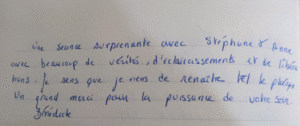 Une séance surprenante avec Stéphane & Anne
avec beaucoup de vérités, d'éclaircissements et de libéra
tions. Je sens que je viens de renaître.
Un grand merci pour la puissance de votre soin
Bénédicte